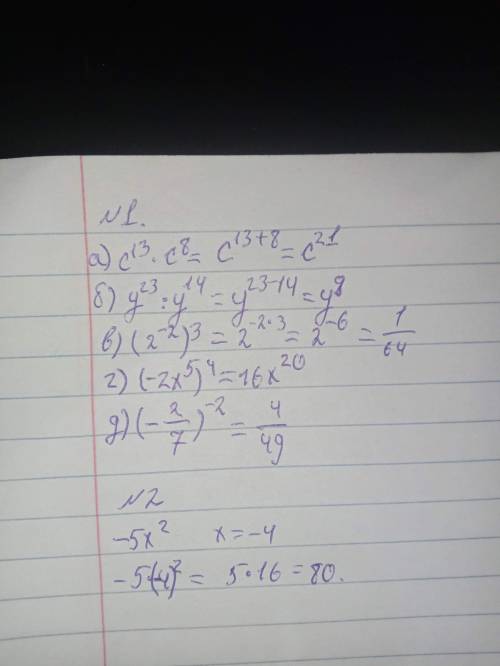 №1.
а) c¹³ · c⁸ = c¹³⁺⁸ = c²¹
б) y²³ : y¹⁴ = y²³⁻¹⁴ = y⁹
в) (2⁻²)³ = 2⁻²·³ = 2⁻⁶ = 1/64
г) (-2x⁵)⁴ = 16x²⁰
д) (-2/7)⁻² = 4/49
№2
-5x² x = -4
-5·(-4)² = 5·16 = 80.